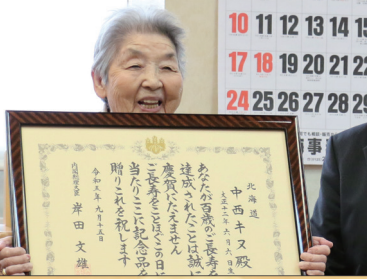 10 11 12 13 14 15
17 18 19 20 21 22
24 25 26 27 28 29
北海道
中西キヌ殿
あなたが百歳のご長寿を
達成されたことは誠に
慶賀にたえません
ご長寿をことほぐこの日に
当たりここに記念品を
贈りこれを祝します
令和五年九月十五日
内閣総理大臣
岸田文雄